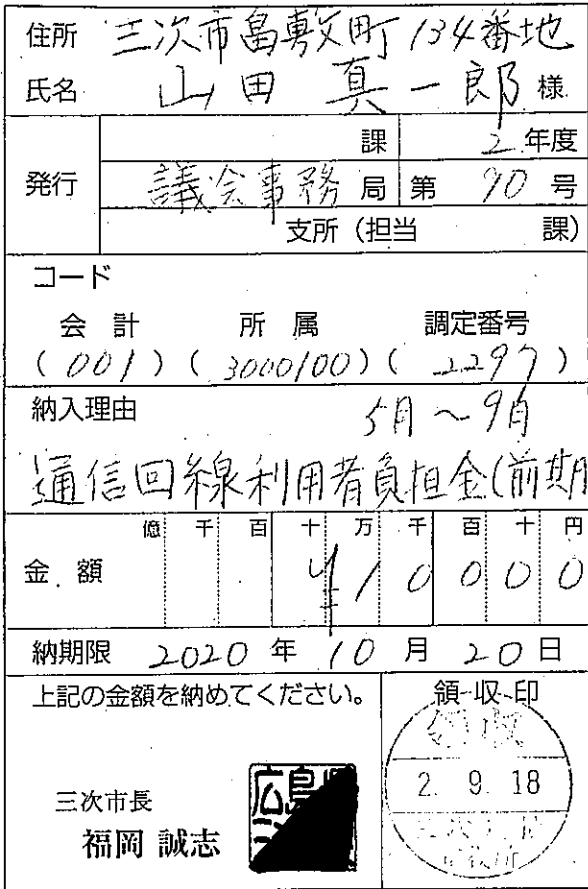 住所 三次市畠敷町134番地
氏名 山田 真一郎 様
課 2年度
発行 議会事務局 第 90 号
支所（担当 課）
コード
会計 所属 調定番号
（001）（3000100）（2297）
納入理由 5月～9月
通信回線利用者負担金(前期
億 千 百 十 万 千 百 十 円
金額 ¥10000
納期限 2020年10月20日
上記の金額を納めてください。
領収印
領収
2. 9. 18
三次市長
福岡 誠志
広島